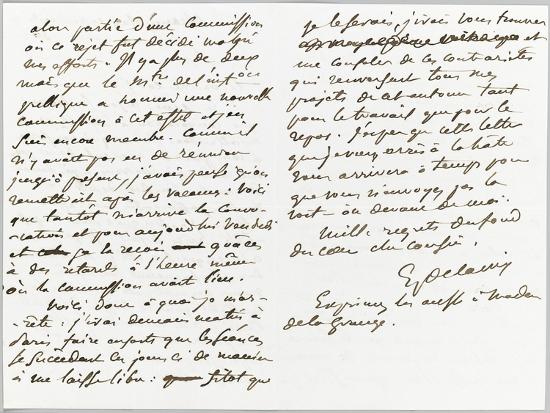 alors partie d'une commission
où ce rejet fut décidé malgré
mes efforts. Il y a plus de deux
mois que le Mtre de l'inston
publique a nommé une nouvelle
commission à cet effet et j'en
suis encore membre. Comme il
n'y avait pas eu de réunion
jusqu'à présent, j'avais pensé qu'on
remettrait après les vacances : voici
que tantôt m'arrive la convo-
-cation et pour aujourd'hui vendredi
et ça la reçoit grâces
à des retards à l'heure même
où la commission avait lieu.
Voici donc à quoi je m'ar-
-rête : j'irai demain matin à
Paris faire en sorte que les séances
se succèdent ces jours ci de manière
à me laisser libre : sitot que
je le serai, j'irai vous trouver
me consoler de ces contrariétés
qui renversent tous mes
projets de cet automne tant
pour le travail que pour le
repos. J'espère que cette lettre
que je vous écris à la hâte
vous arrivera à temps pour
que vous n'envoyez pas la
voit- ure au devant de moi.
Mille regrets du fond
du cœur cher cousin.
EugDelacroix
Exprimez les aussi à Madame
de la Grange.